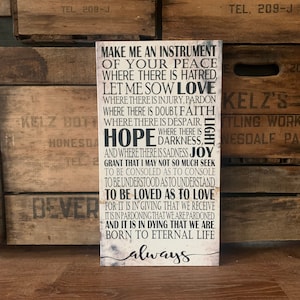 MAKE ME AN INSTRUMENT
OF YOUR PEACE
WHERE THERE IS HATRED,
LET ME SOW LOVE
WHERE THERE IS INJURY, PARDON
WHERE THERE IS DOUBT, FAITH
WHERE THERE IS DESPAIR
HOPE WHERE THERE IS
DARKNESS, LIGHT
AND WHERE THERE IS SADNESS JOY
GRANT THAT I MAY NOT SO MUCH SEEK
TO BE CONSOLED AS TO CONSOLE
TO BE UNDERSTOOD AS TO UNDERSTAND
TO BE LOVED AS TO LOVE
FOR IT IS IN GIVING THAT WE RECEIVE
IT IS IN PARDONING THAT WE ARE PARDONED
AND IT IS IN DYING THAT WE ARE
BORN TO ETERNAL LIFE
always
TEL. 200
KELZ'S
BOTTLING WORKS
HONESDALE PA.
HONESDALE
BEVER